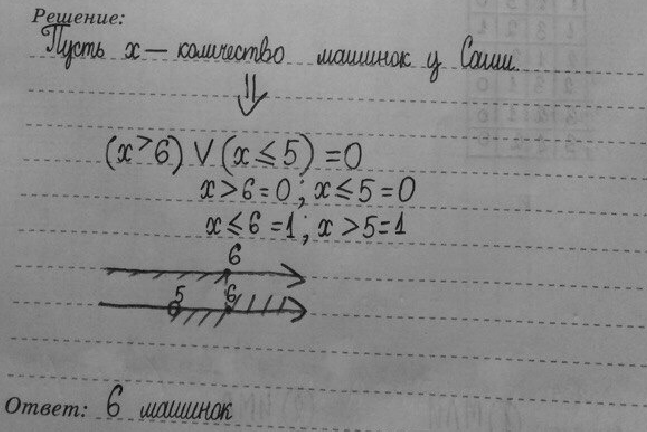 Решение:
Пусть x — количество машинок у Саши.
⇓
(x > 6) ∨ (x ≤ 5) = 0
x > 6 = 0; x ≤ 5 = 0
x ≤ 6 = 1; x > 5 = 1
6
5 6
Ответ: 6 машинок